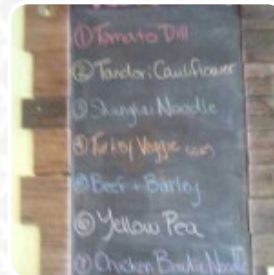 ① Tomato Dill
② Tandori Cauliflower
③ Shanghai Noodle
④ Turkey Veggie
⑤ Beef + Barley
⑥ Yellow Pea
⑦ Chicken Noodle